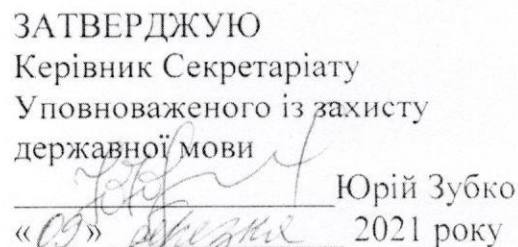 ЗАТВЕРДЖУЮ
Керівник Секретаріату
Уповноваженого із захисту
державної мови
Юрій Зубко
«09» березня 2021 року